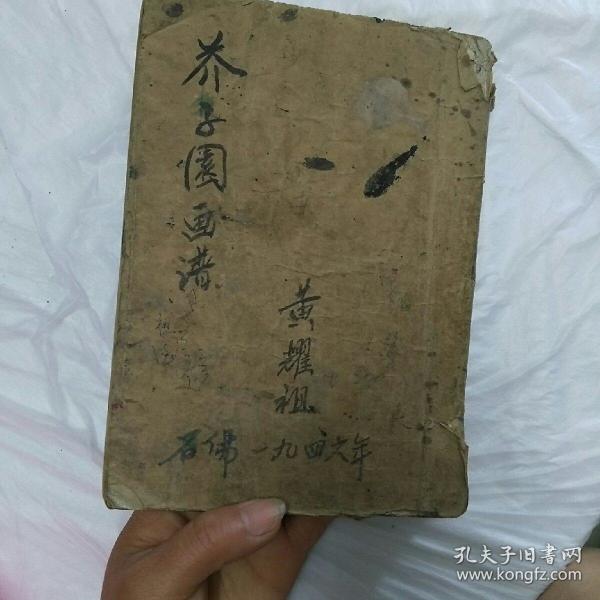 芥子園画谱
黄耀祖
石佛 一九四六年
孔夫子旧書网
www.kongfz.com